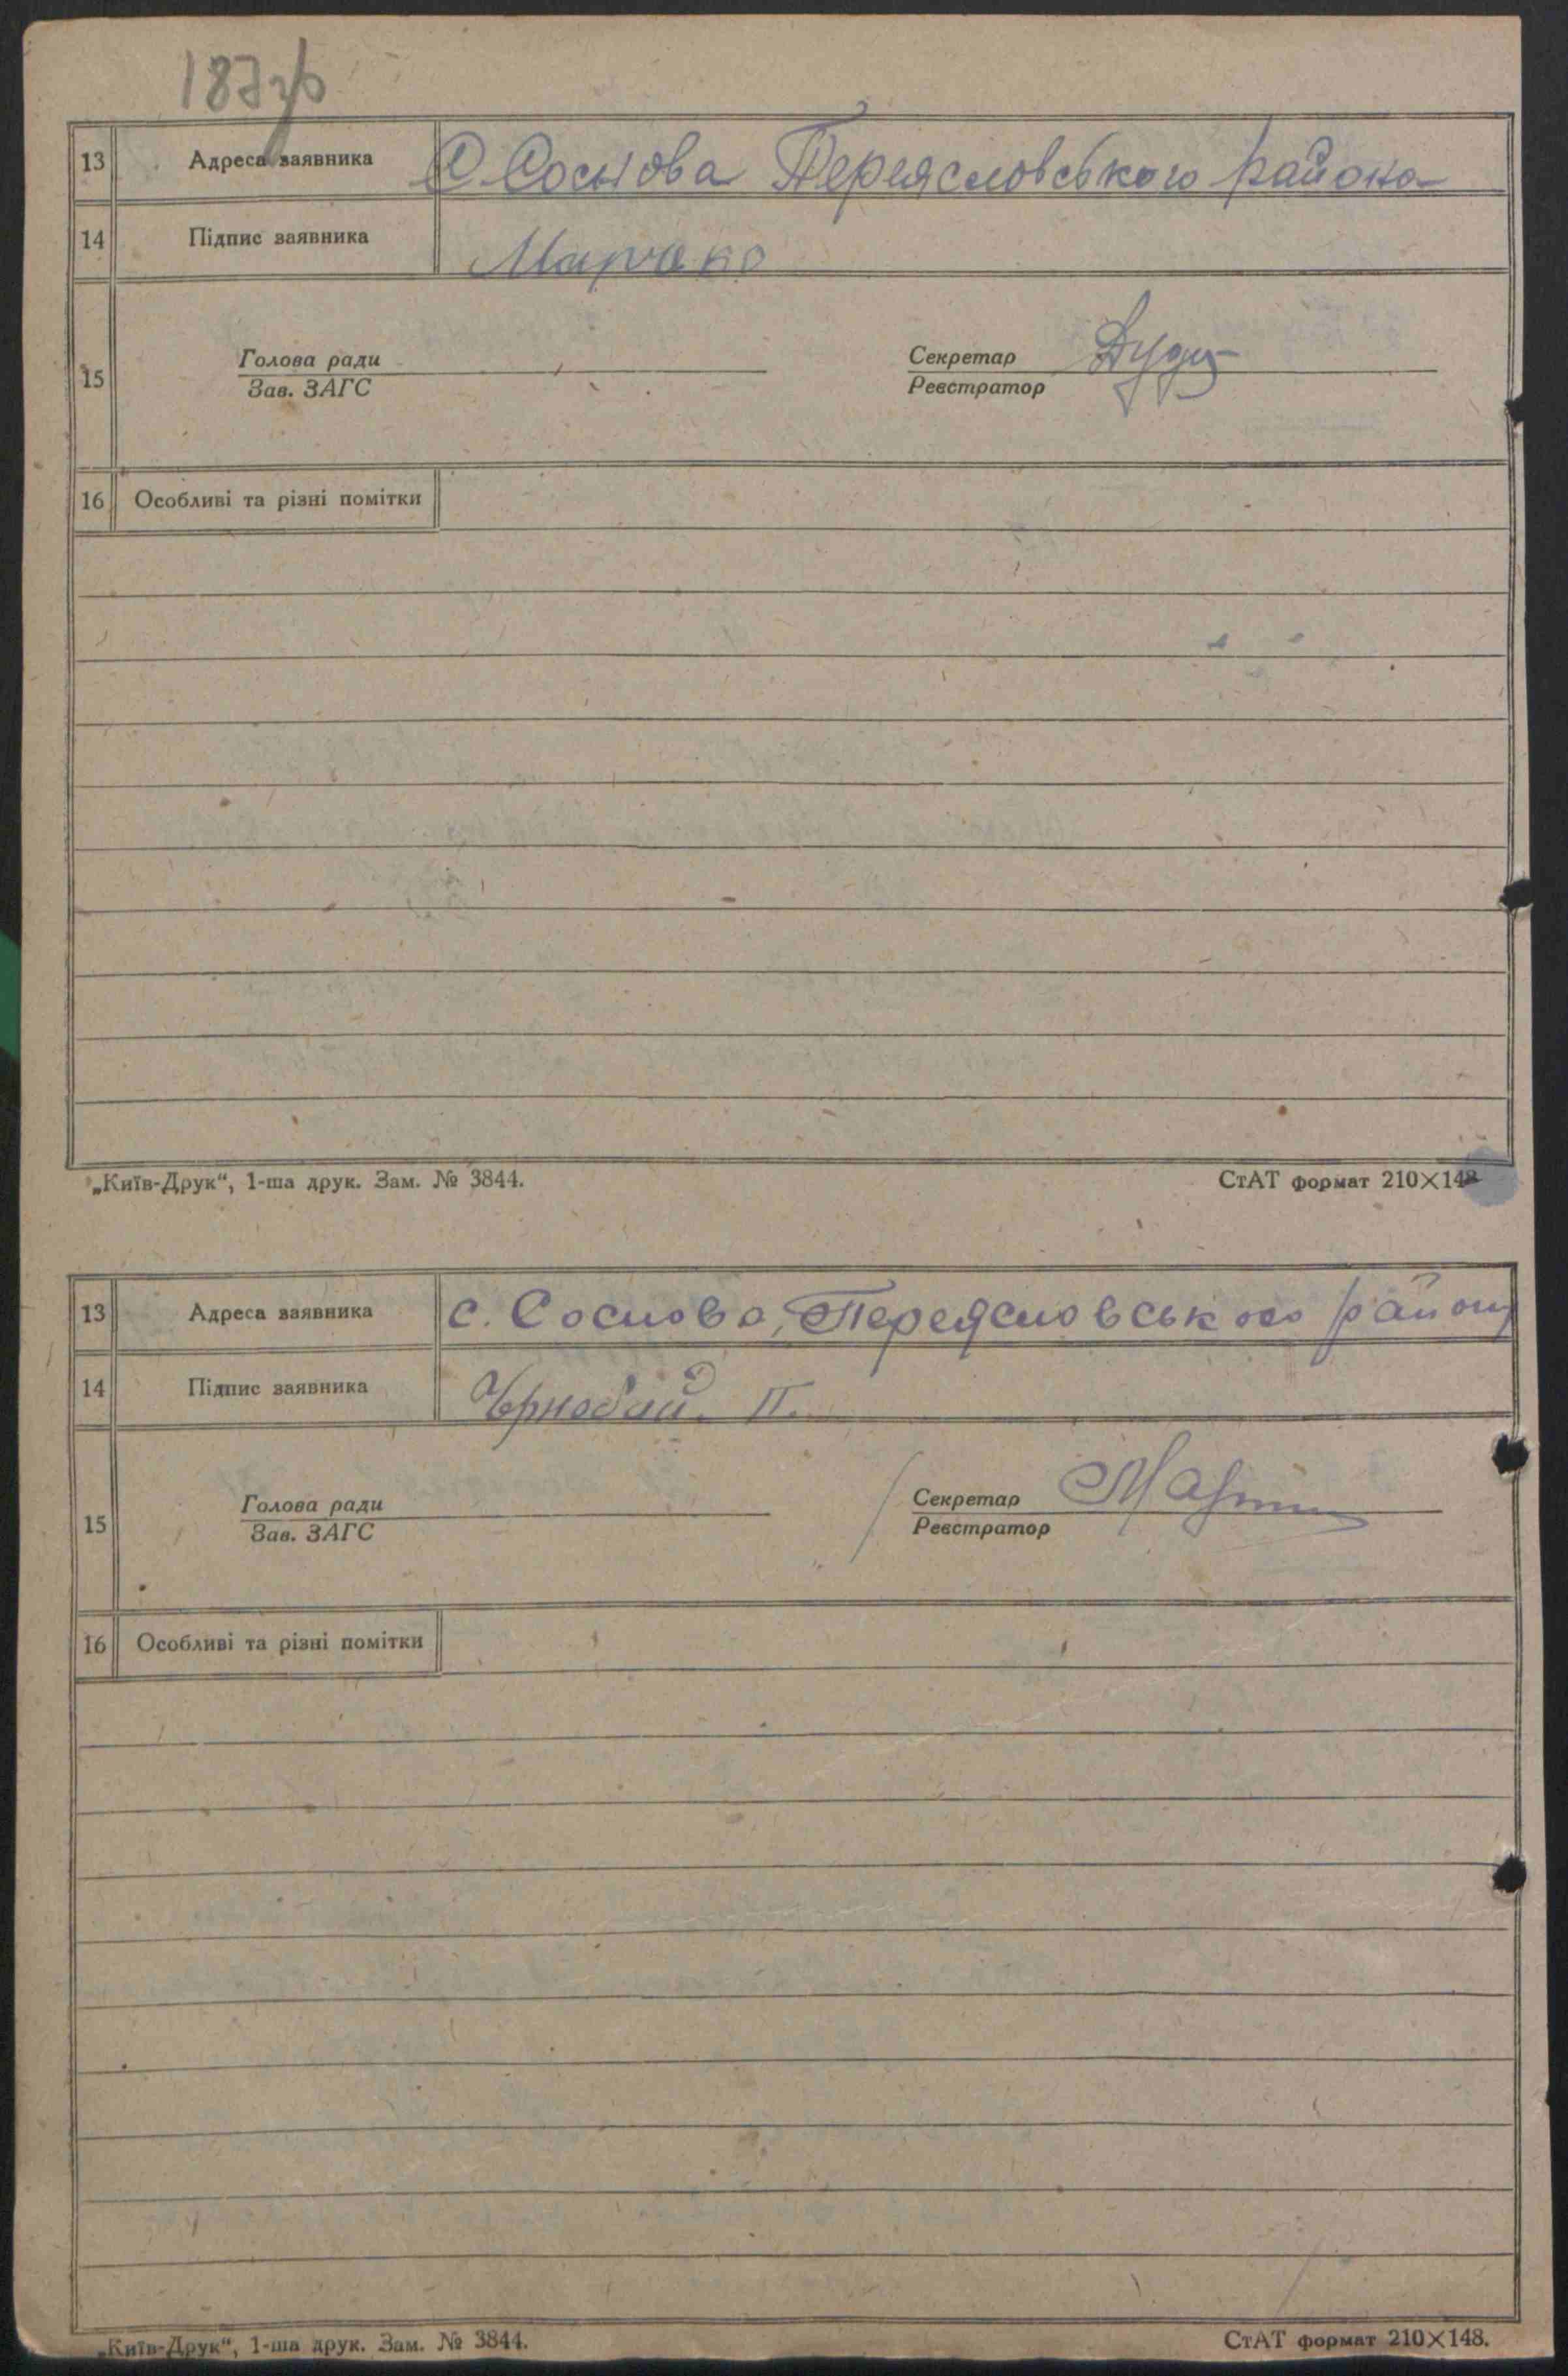 187зв
13 Адреса заявника С Соснова Переясловського района
14 Підпис заявника Марченко
15 Голова ради Секретар
Зав. ЗАГС Реєстратор
16 Особливі та різні помітки
„Київ-Друк“, 1-ша друк. Зам. № 3844. СтАТ формат 210×148
13 Адреса заявника с. Соснова, Переясловського району
14 Підпис заявника Чрнобай. П.
15 Голова ради Секретар
Зав. ЗАГС Реєстратор
16 Особливі та різні помітки
„Київ-Друк“, 1-ша друк. Зам. № 3844. СтАТ формат 210×148.